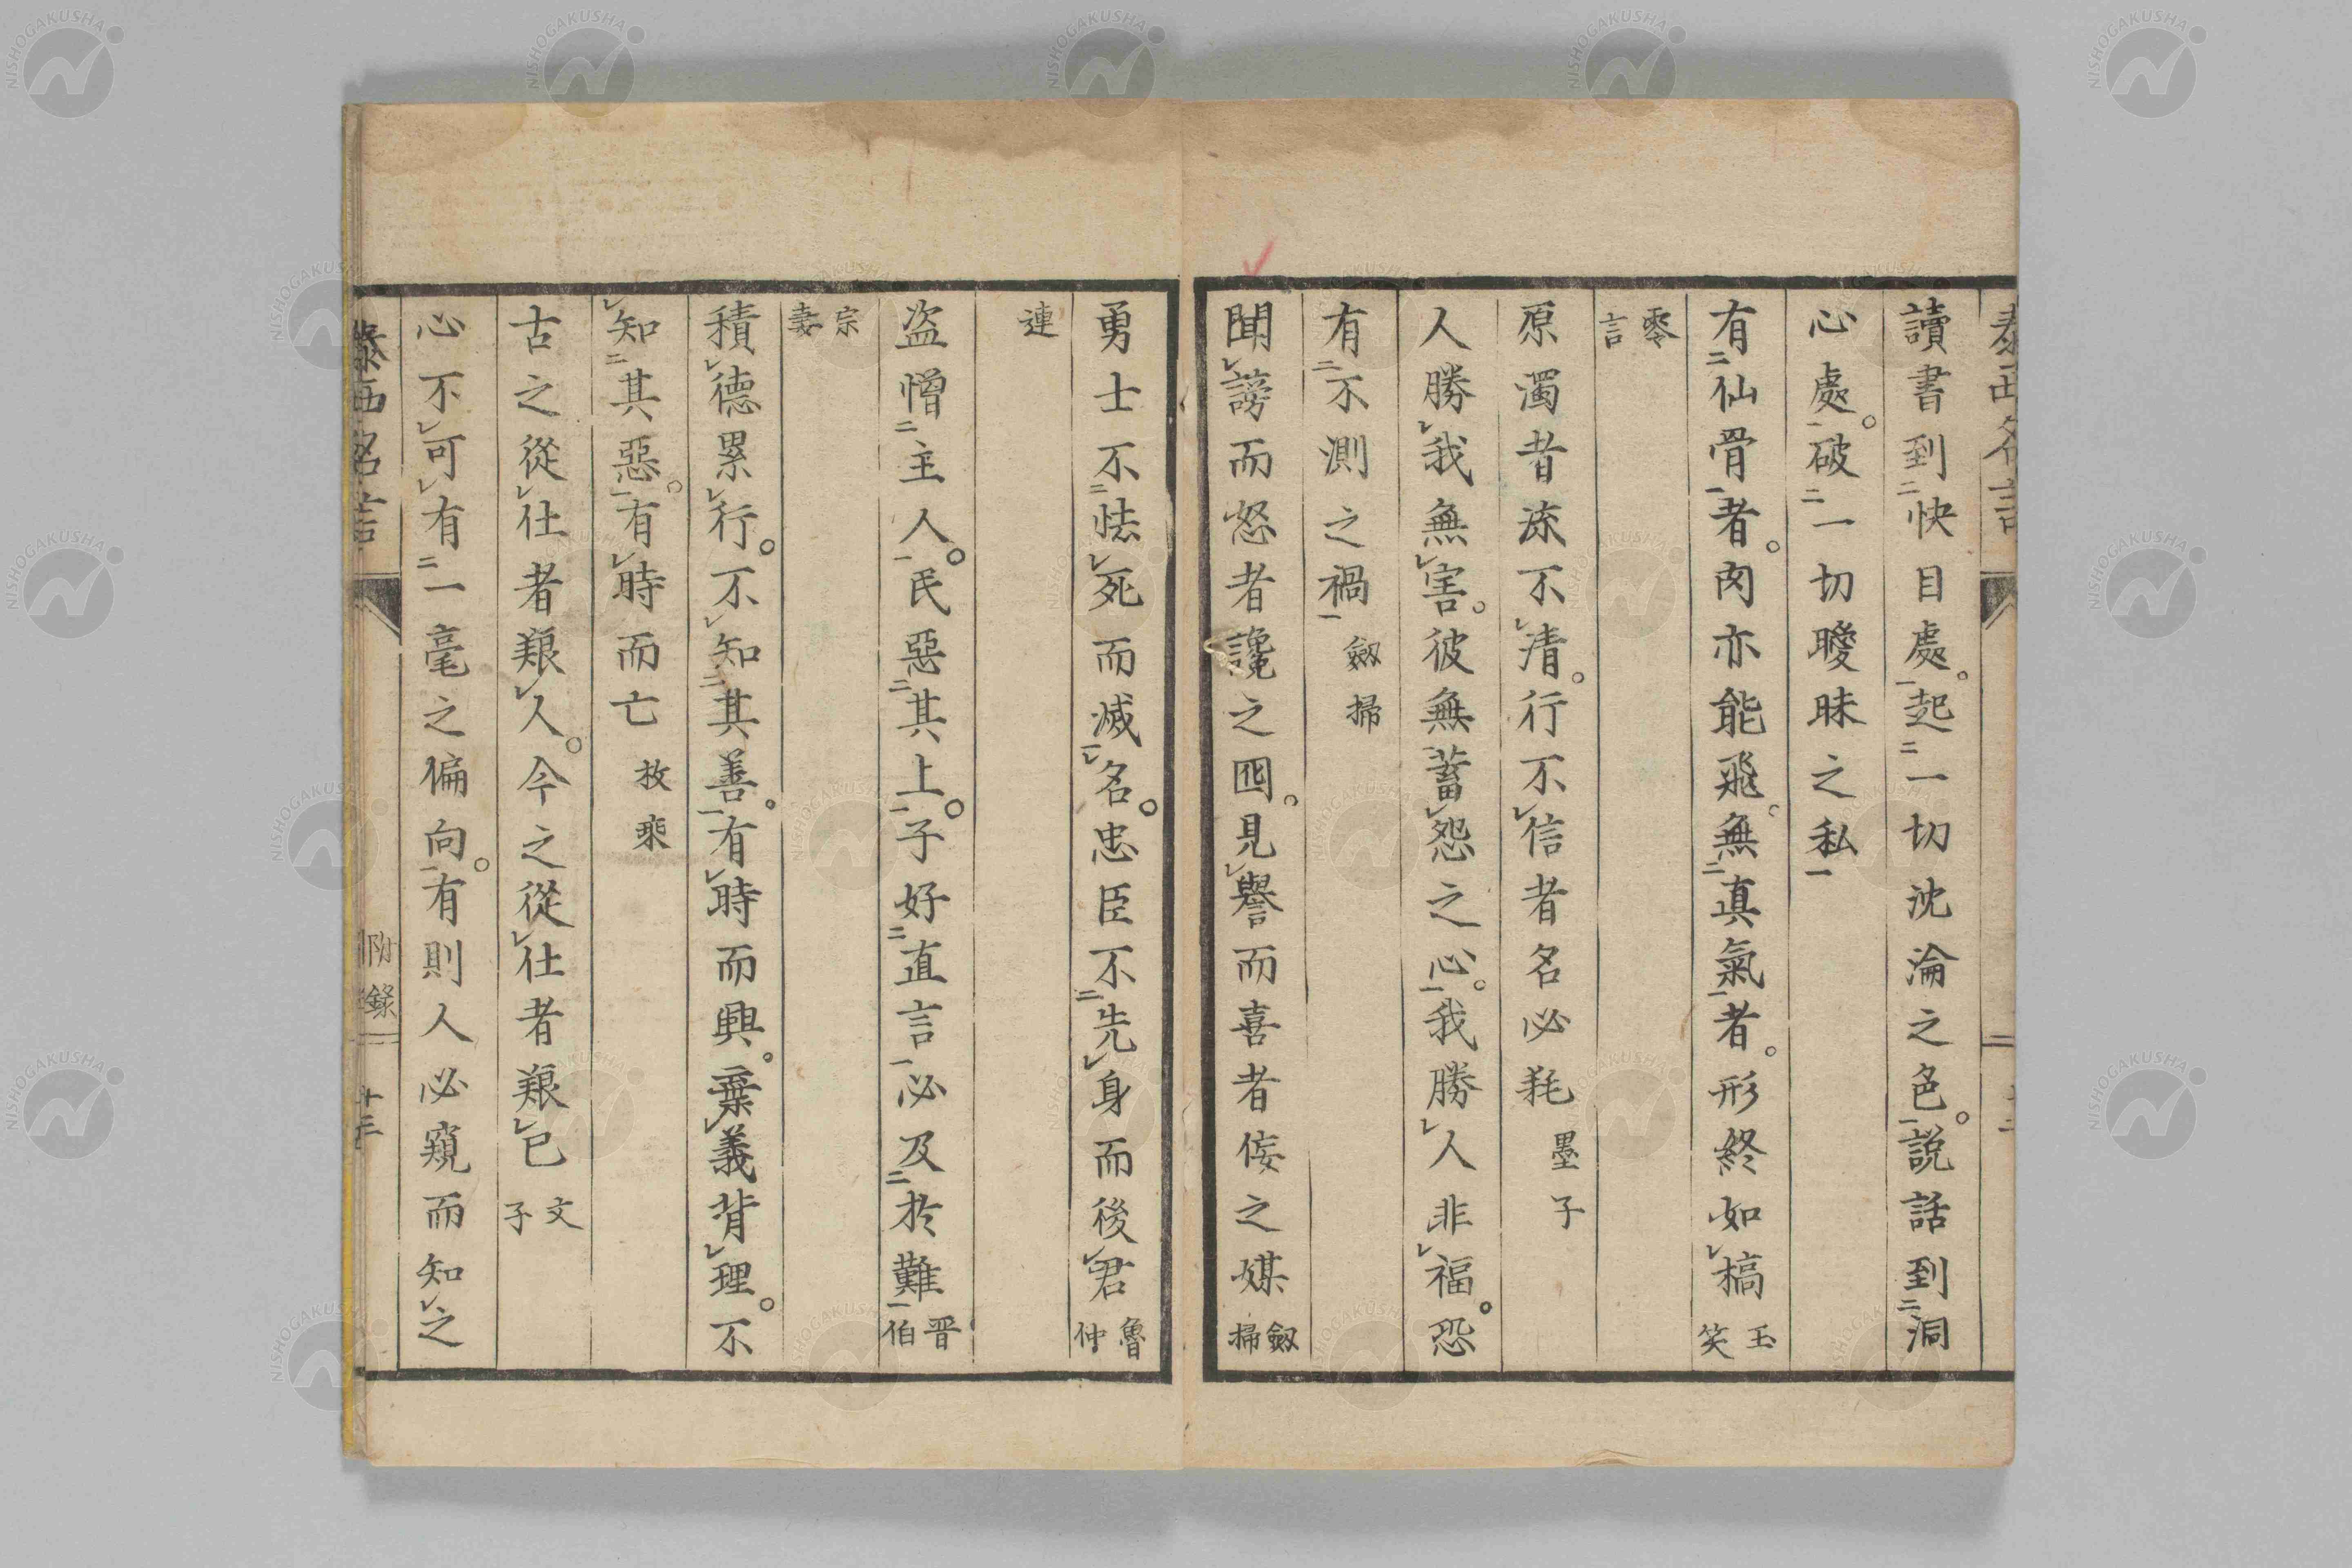 泰西名言
讀書到快目處。起一切沈淪之色。説話到洞
心處。破一切曖昧之私
有仙骨者。肉亦能飛。無真氣者。形終如槁 玉笑
零言
原濁者流不清。行不信者名必耗 墨子
人勝我無害。彼無蓄怨之心。我勝人非福。恐
有不測之禍 劔掃
聞謗而怒者讒之囮。見譽而喜者佞之媒 劔掃
勇士不怯死而滅名。忠臣不先身而後君 魯仲
連
盗憎主人。民惡其上。子好直言必及於難 晋伯
宗妻
積德累行。不知其善。有時而興。棄義背理。不
知其惡。有時而亡 枚乘
古之從仕者艱人。今之從仕者艱已 文子
心不可有一毫之偏向。有則人必窺而知之
泰西名言 附錄 十三
NISHOGAKUSHA